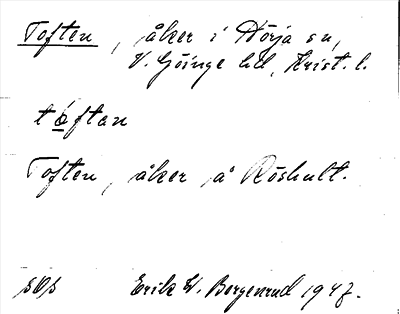 Toften, åker i Hörja sn,
V. Göinge hd, Krist. l.
tòftan
Toften, åker å Röshult.
sOs Erik W. Bergenrud 1947.